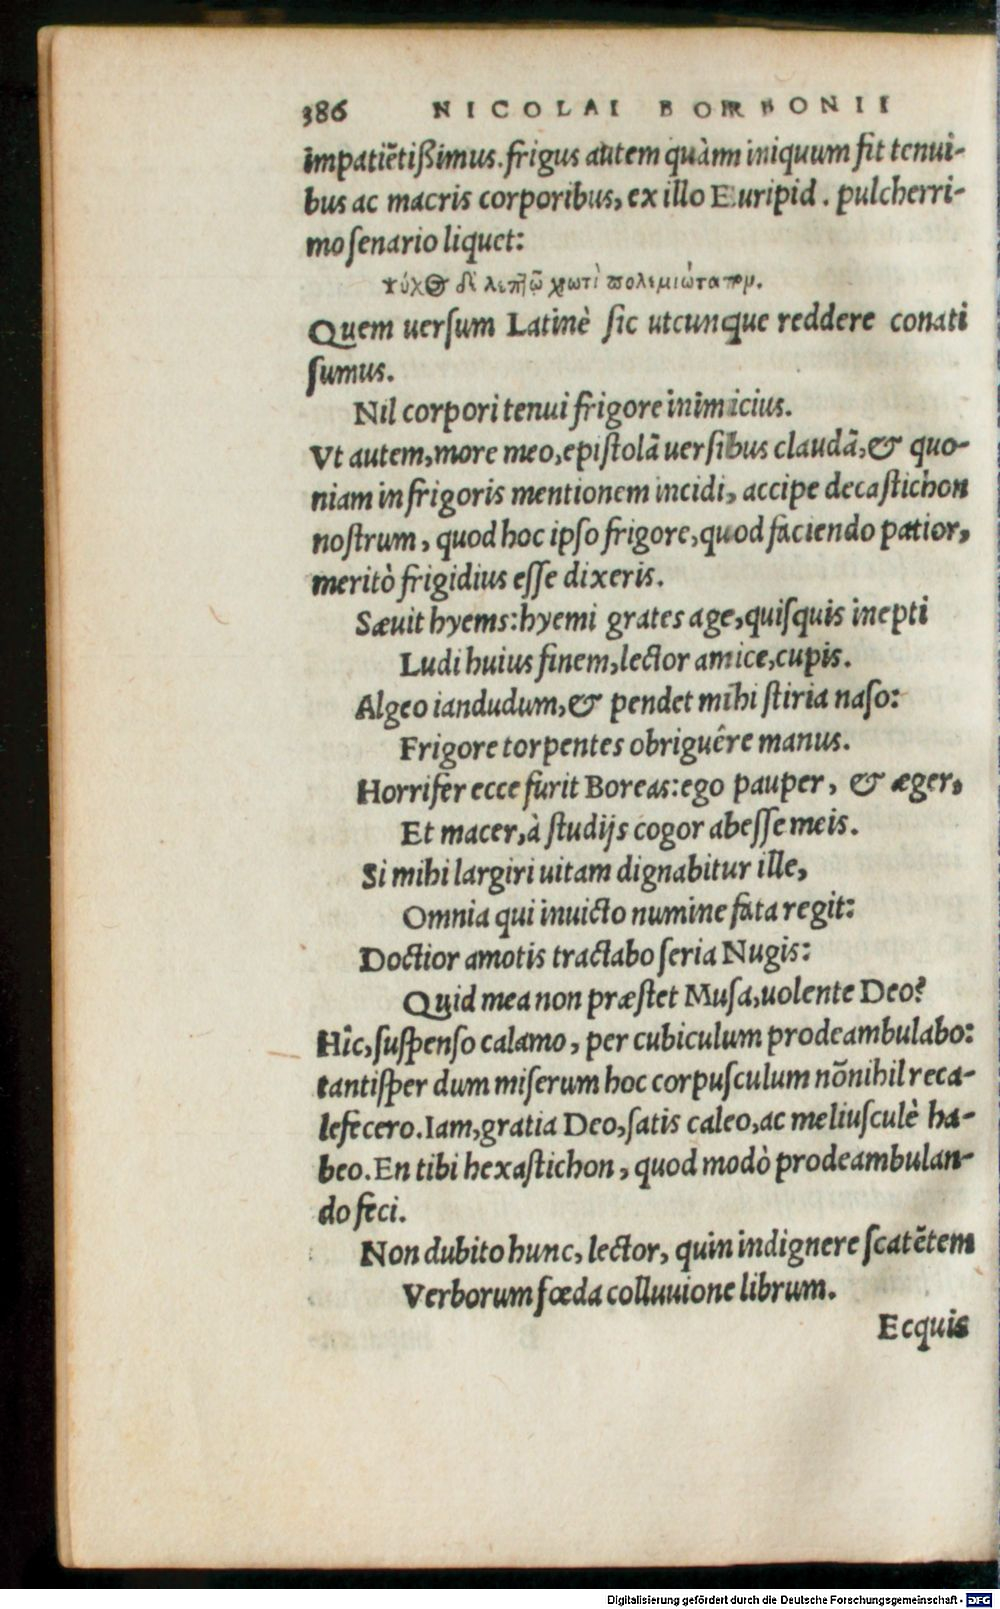 386 NICOLAI BORBONII
impatiẽtißimus. frigus autem quàm iniquum sit tenui-
bus ac macris corporibus, ex illo Euripid. pulcherri-
mo senario liquet:
ψύχος δὲ λεπτῷ χρωτὶ πολεμιώτατον.
Quem uersum Latinè sic utcunque reddere conati
sumus.
Nil corpori tenui frigore inimicius.
Vt autem, more meo, epistolã uersibus claudã, & quo-
niam in frigoris mentionem incidi, accipe decastichon
nostrum, quod hoc ipso frigore, quod faciendo patior,
meritò frigidius esse dixeris.
Sæuit hyems: hyemi grates age, quisquis inepti
Ludi huius finem, lector amice, cupis.
Algeo iandudum, & pendet mihi stiria naso:
Frigore torpentes obriguêre manus.
Horrifer ecce furit Boreas: ego pauper, & æger,
Et macer, à studijs cogor abesse meis.
Si mihi largiri uitam dignabitur ille,
Omnia qui inuicto numine fata regit:
Doctior amotis tractabo seria Nugis:
Quid mea non præstet Musa, uolente Deo?
Hîc, suspenso calamo, per cubiculum prodeambulabo:
tantisper dum miserum hoc corpusculum nõnihil reca-
lefecero. Iam, gratia Deo, satis caleo, ac meliusculè ha-
beo. En tibi hexastichon, quod modò prodeambulan-
do feci.
Non dubito hunc, lector, quin indignere scatẽtem
Verborum fœda colluuione librum.
Ecquis
Digitalisierung gefördert durch die Deutsche Forschungsgemeinschaft - DFG